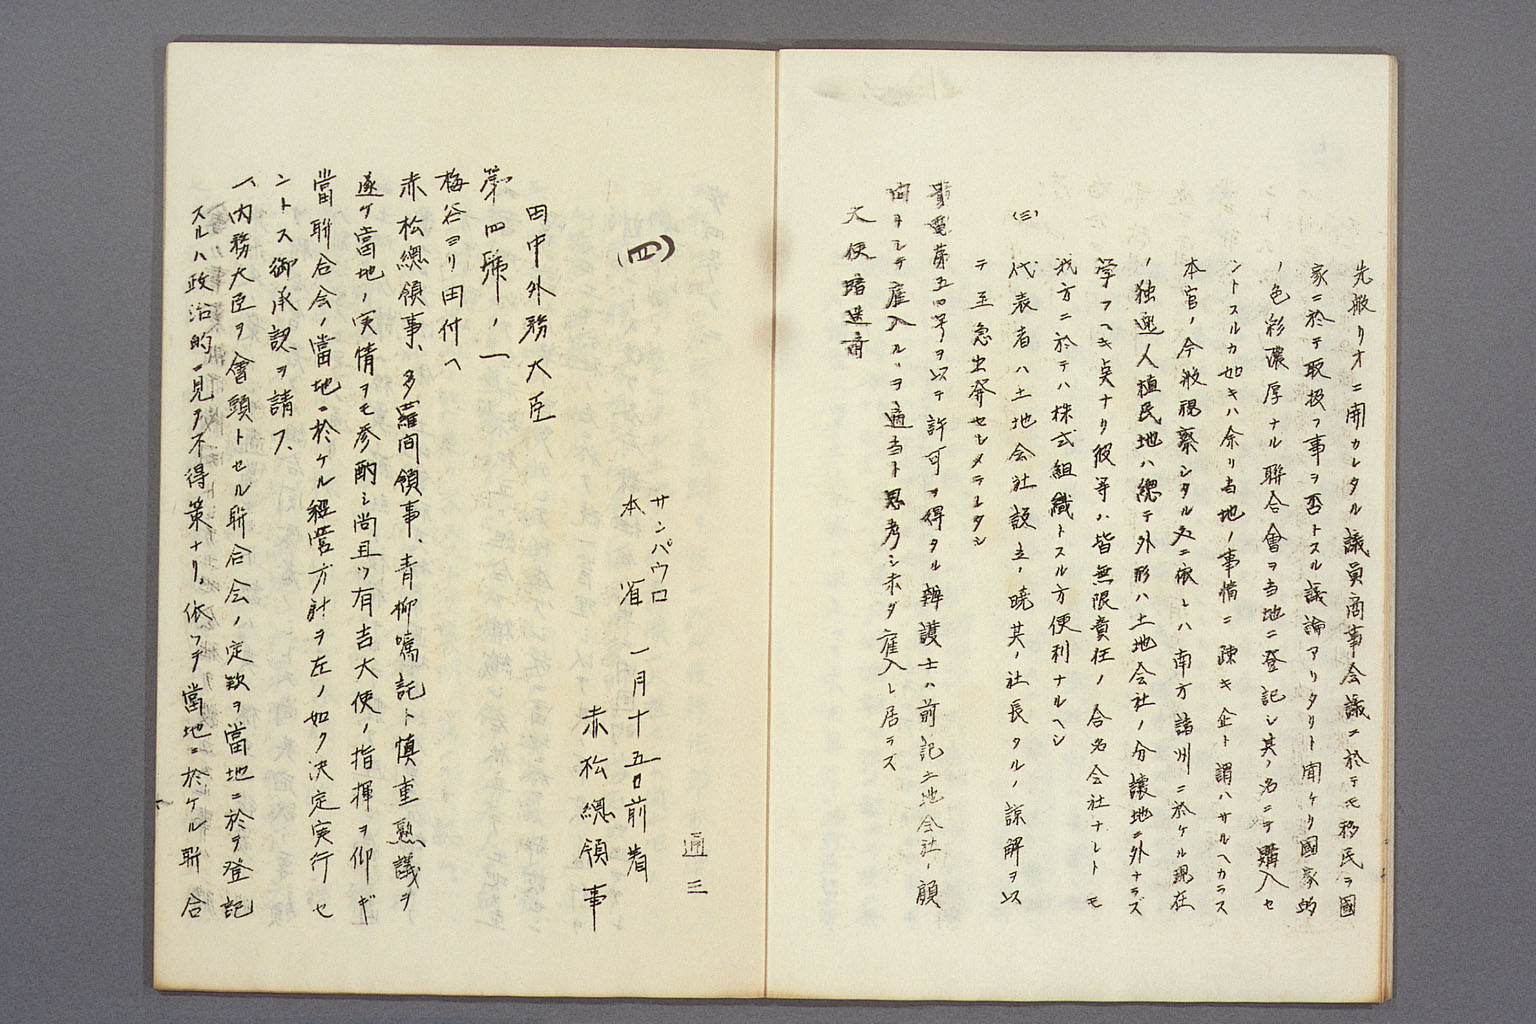 先般リオニ開カレタル議員商事会議ニ於テモ移民ヲ國
家ニ於テ取扱フ事ヲ否トスル議論アリタリト聞ケリ國家的
ノ色彩濃厚ナル聯合會ヲ当地ニ登記シ其ノ名ニテ購入セ
ントスルカ如キハ余リ当地ノ事情ニ疎キ企ト謂ハサルヘカラス
本官ノ今般視察シタル処ニ依レハ南方諸州ニ於ケル現在
ノ独逸人植民地ハ總テ外形ハ土地会社ノ分譲地ニ外ナラズ
学フヘキ点ナリ彼等ハ皆無限責任ノ合名会社ナレトモ
我方ニ於テハ株式組織トスル方便利ナルヘシ
(三)代表者ハ土地会社設立ノ暁其ノ社長タルノ諒解ヲ以
テ至急出発セシメラレタシ
貴電第五〇号ヲ以テ許可ヲ得タル辨護士ハ前記土地会社ノ顧
問トシテ雇入ルヽヲ適当ト思考シ未ダ雇入レ居ラズ
大使暗送済
通三
(四)
サンパウロ
本省 一月十五日前着
赤松總領事
田中外務大臣
第四號ノ一
梅谷ヨリ田付ヘ
赤松總領事、多羅間領事、青柳嘱託ト慎重熟議ヲ
遂ゲ當地ノ実情ヲモ参酌シ尚且ツ有吉大使ノ指揮ヲ仰ギ
當聯合会ノ當地ニ於ケル経営方針ヲ左ノ如ク決定実行セ
ントス御承認ヲ請フ、
一、内務大臣ヲ會頭トセル聯合会ノ定款ヲ當地ニ於テ登記
スルハ政治的ニ見ヲ不得策ナリ、依ツテ當地ニ於ケル聯合